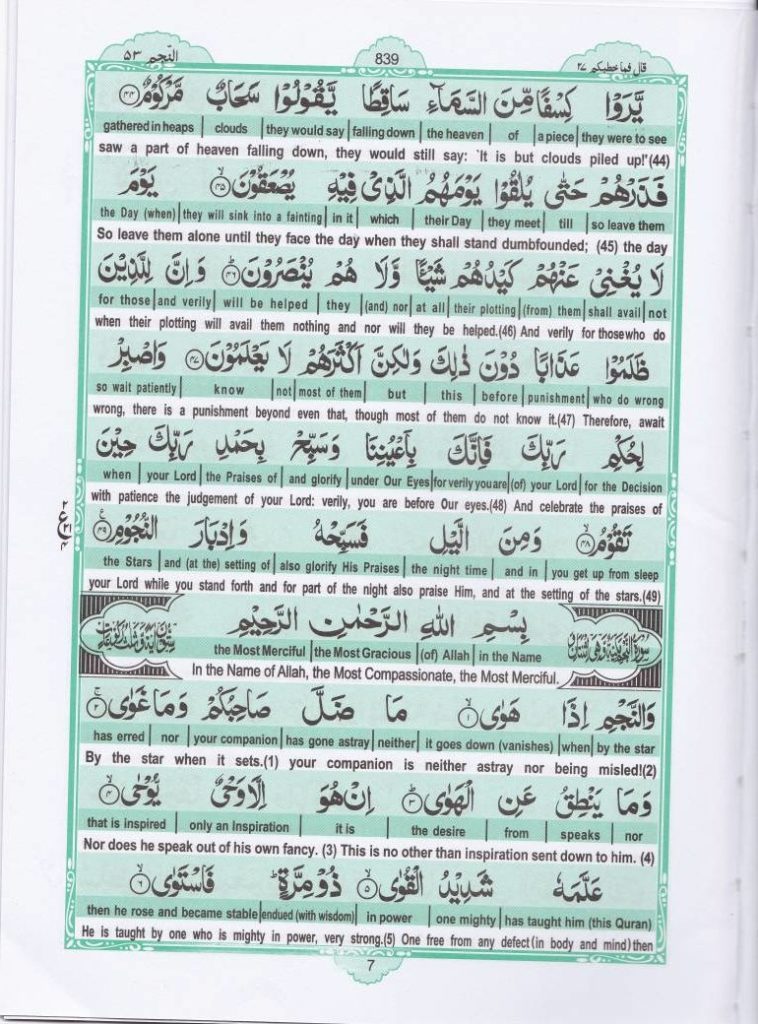 قال فما خطبكم ٢٧ 839 النجم ٥٣
يَّرَوْا كِسْفًا مِّنَ السَّمَآءِ سَاقِطًا يَّقُوْلُوْا سَحَابٌ مَّرْكُوْمٌ ٤٤
gathered in heaps | clouds | they would say | falling down | the heaven | of | a piece | they were to see
saw a part of heaven falling down, they would still say: `It is but clouds piled up!'(44)
فَذَرْهُمْ حَتّٰى يُلٰقُوْا يَوْمَهُمُ الَّذِيْ فِيْهِ يُصْعَقُوْنَ ٤٥ يَوْمَ
the Day (when) | they will sink into a fainting | in it | which | their Day | they meet | till | so leave them
So leave them alone until they face the day when they shall stand dumbfounded; (45) the day
لَا يُغْنِيْ عَنْهُمْ كَيْدُهُمْ شَيْـًٔا وَّلَا هُمْ يُنْصَرُوْنَ ٤٦ وَاِنَّ لِلَّذِيْنَ
for those | and verily | will be helped | they | (and) nor | at all | their plotting | (from) them | shall avail | not
when their plotting will avail them nothing and nor will they be helped.(46) And verily for those who do
ظَلَمُوْا عَذَابًا دُوْنَ ذٰلِكَ وَلٰكِنَّ اَكْثَرَهُمْ لَا يَعْلَمُوْنَ ٤٧ وَاصْبِرْ
so wait patiently | know | not | most of them | but | this | before | punishment | who do wrong
wrong, there is a punishment beyond even that, though most of them do not know it.(47) Therefore, await
لِحُكْمِ رَبِّكَ فَاِنَّكَ بِاَعْيُنِنَا وَسَبِّحْ بِحَمْدِ رَبِّكَ حِيْنَ
when | your Lord | the Praises of | and glorify | under Our Eyes | for verily you are | (of) your Lord | for the Decision
with patience the judgement of your Lord: verily, you are before Our eyes.(48) And celebrate the praises of
تَقُوْمُ ٤٨ وَمِنَ الَّيْلِ فَسَبِّحْهُ وَاِدْبَارَ النُّجُوْمِ ٤٩
the Stars | and (at the) setting of | also glorify His Praises | the night time | and in | you get up from sleep
your Lord while you stand forth and for part of the night also praise Him, and at the setting of the stars.(49)
بِسْمِ اللهِ الرَّحْمٰنِ الرَّحِيْمِ
the Most Merciful | the Most Gracious | (of) Allah | in the Name
In the Name of Allah, the Most Compassionate, the Most Merciful.
وَالنَّجْمِ اِذَا هَوٰى ١ مَا ضَلَّ صَاحِبُكُمْ وَمَا غَوٰى ٢
has erred | nor | your companion | has gone astray | neither | it goes down (vanishes) | when | by the star
By the star when it sets.(1) your companion is neither astray nor being misled!(2)
وَمَا يَنْطِقُ عَنِ الْهَوٰى ٣ اِنْ هُوَ اِلَّا وَحْيٌ يُّوْحٰى ٤
that is inspired | only an Inspiration | it is | the desire | from | speaks | nor
Nor does he speak out of his own fancy. (3) This is no other than inspiration sent down to him. (4)
عَلَّمَهٗ شَدِيْدُ الْقُوٰى ٥ ذُوْ مِرَّةٍ فَاسْتَوٰى ٦
then he rose and became stable | endued (with wisdom) | in power | one mighty | has taught him (this Quran)
He is taught by one who is mighty in power, very strong.(5) One free from any defect (in body and mind) then
7